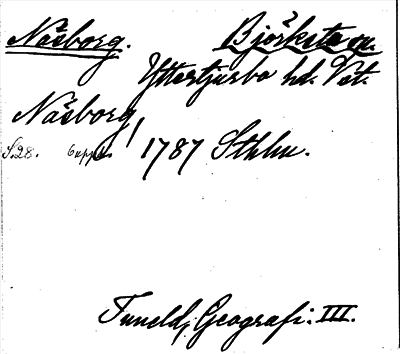 Näsborg. Björksta sn.
Yttertjurbo hd. Vstm.
Näsborg,
S. 28. 6 uppl. 1787 Sthlm.
Tuneld, Geografi. III.